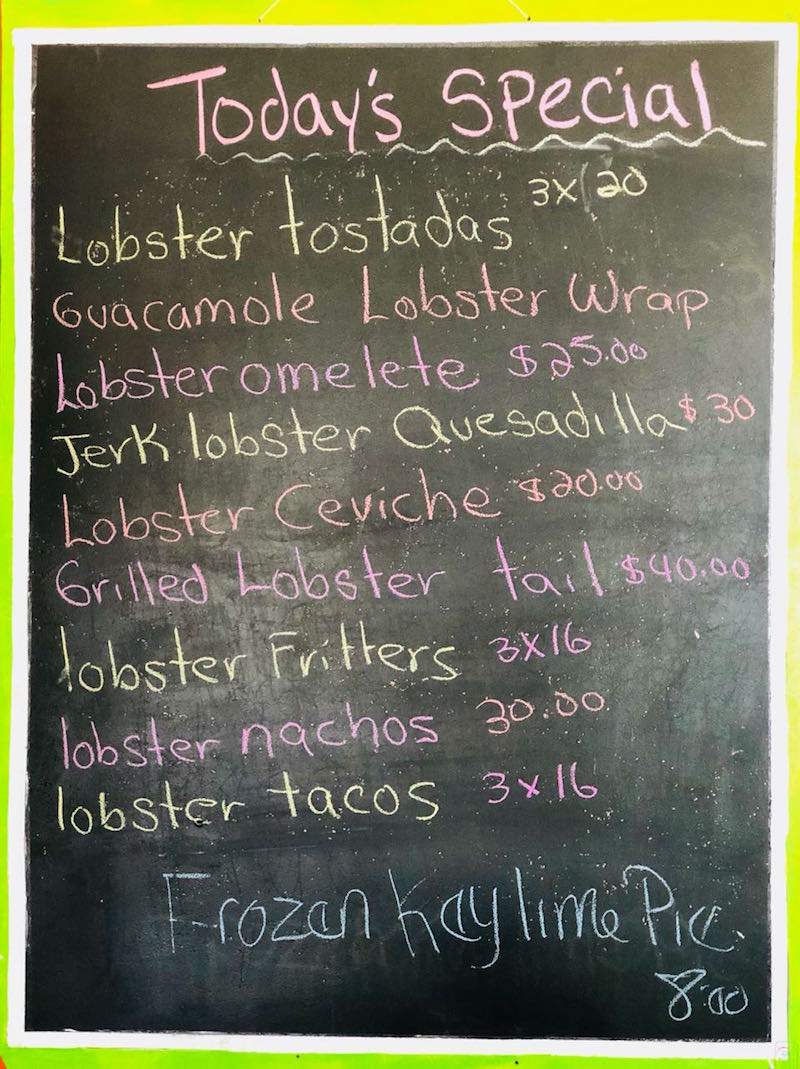 Today's Special
Lobster tostadas 3x20
Guacamole Lobster Wrap
Lobster omelete $25.00
Jerk lobster Quesadilla $30
Lobster Ceviche $20.00
Grilled Lobster tail $40.00
lobster Fritters 3x16
lobster nachos 30.00
lobster tacos 3x16
Frozen Kay lime Pie
8.00